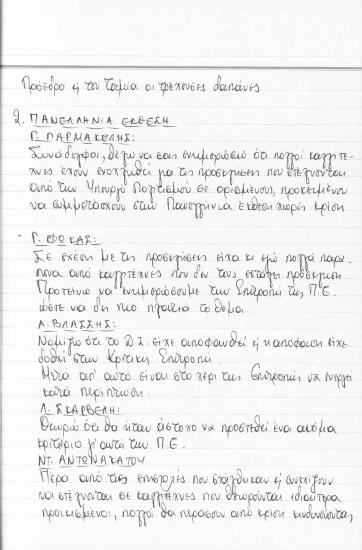 Πρόεδρο ή τον Ταμία οι τρέχουσες δαπάνες
2. ΠΑΝΕΛΛΗΝΙΑ ΕΚΘΕΣΗ
Γ. ΠΑΡΜΑΚΕΛΗΣ:
Συνάδελφοι, θέλω να σας ενημερώσω ότι πολλοί καλλιτέ-
χνες έχουν ενοχληθεί για τις προσκλήσεις που στέλνονται
από τον Υπουργό Πολιτισμού σε ορισμένους, προκειμένου
να συμμετάσχουν στην Πανελλήνια έκθεση χωρίς κρίση.
Γ. ΦΩΚΑΣ:
Σε σχέση με τις προσκλήσεις είχα κι εγώ πολλά παρά-
πονα από καλλιτέχνες που δεν τους εστάλη πρόσκληση.
Προτείνω να ενημερώσουμε την Επιτροπή της Π.Ε.
ώστε να δει πιο πλατεία το θέμα.
Α. ΒΛΑΣΣΗΣ:
Νομίζω ότι το Δ.Σ. είχε αποφανθεί ή η απόφαση είχε
δοθεί στην Κριτική Επιτροπή.
Μετά απ' αυτό είναι στο χέρι της Επιτροπής να ενεργεί
κατά περίπτωση.
Λ. ΣΚΑΡΒΕΛΗ:
Θεωρώ ότι θα ήταν άστοχο να προστεθεί ένα ακόμα
κριτήριο γι αυτή την Π.Ε.
ΝΤ. ΑΝΤΩΝΑΚΑΤΟΥ
Πέρα από τις επιστολές που στάλθηκαν ή συνεχίζουν
να στέλνονται σε καλλιτέχνες που θεωρούνται ιδιαίτερα
προικισμένοι, πολλοί θα περάσουν από κρίση κινδυνεύοντας